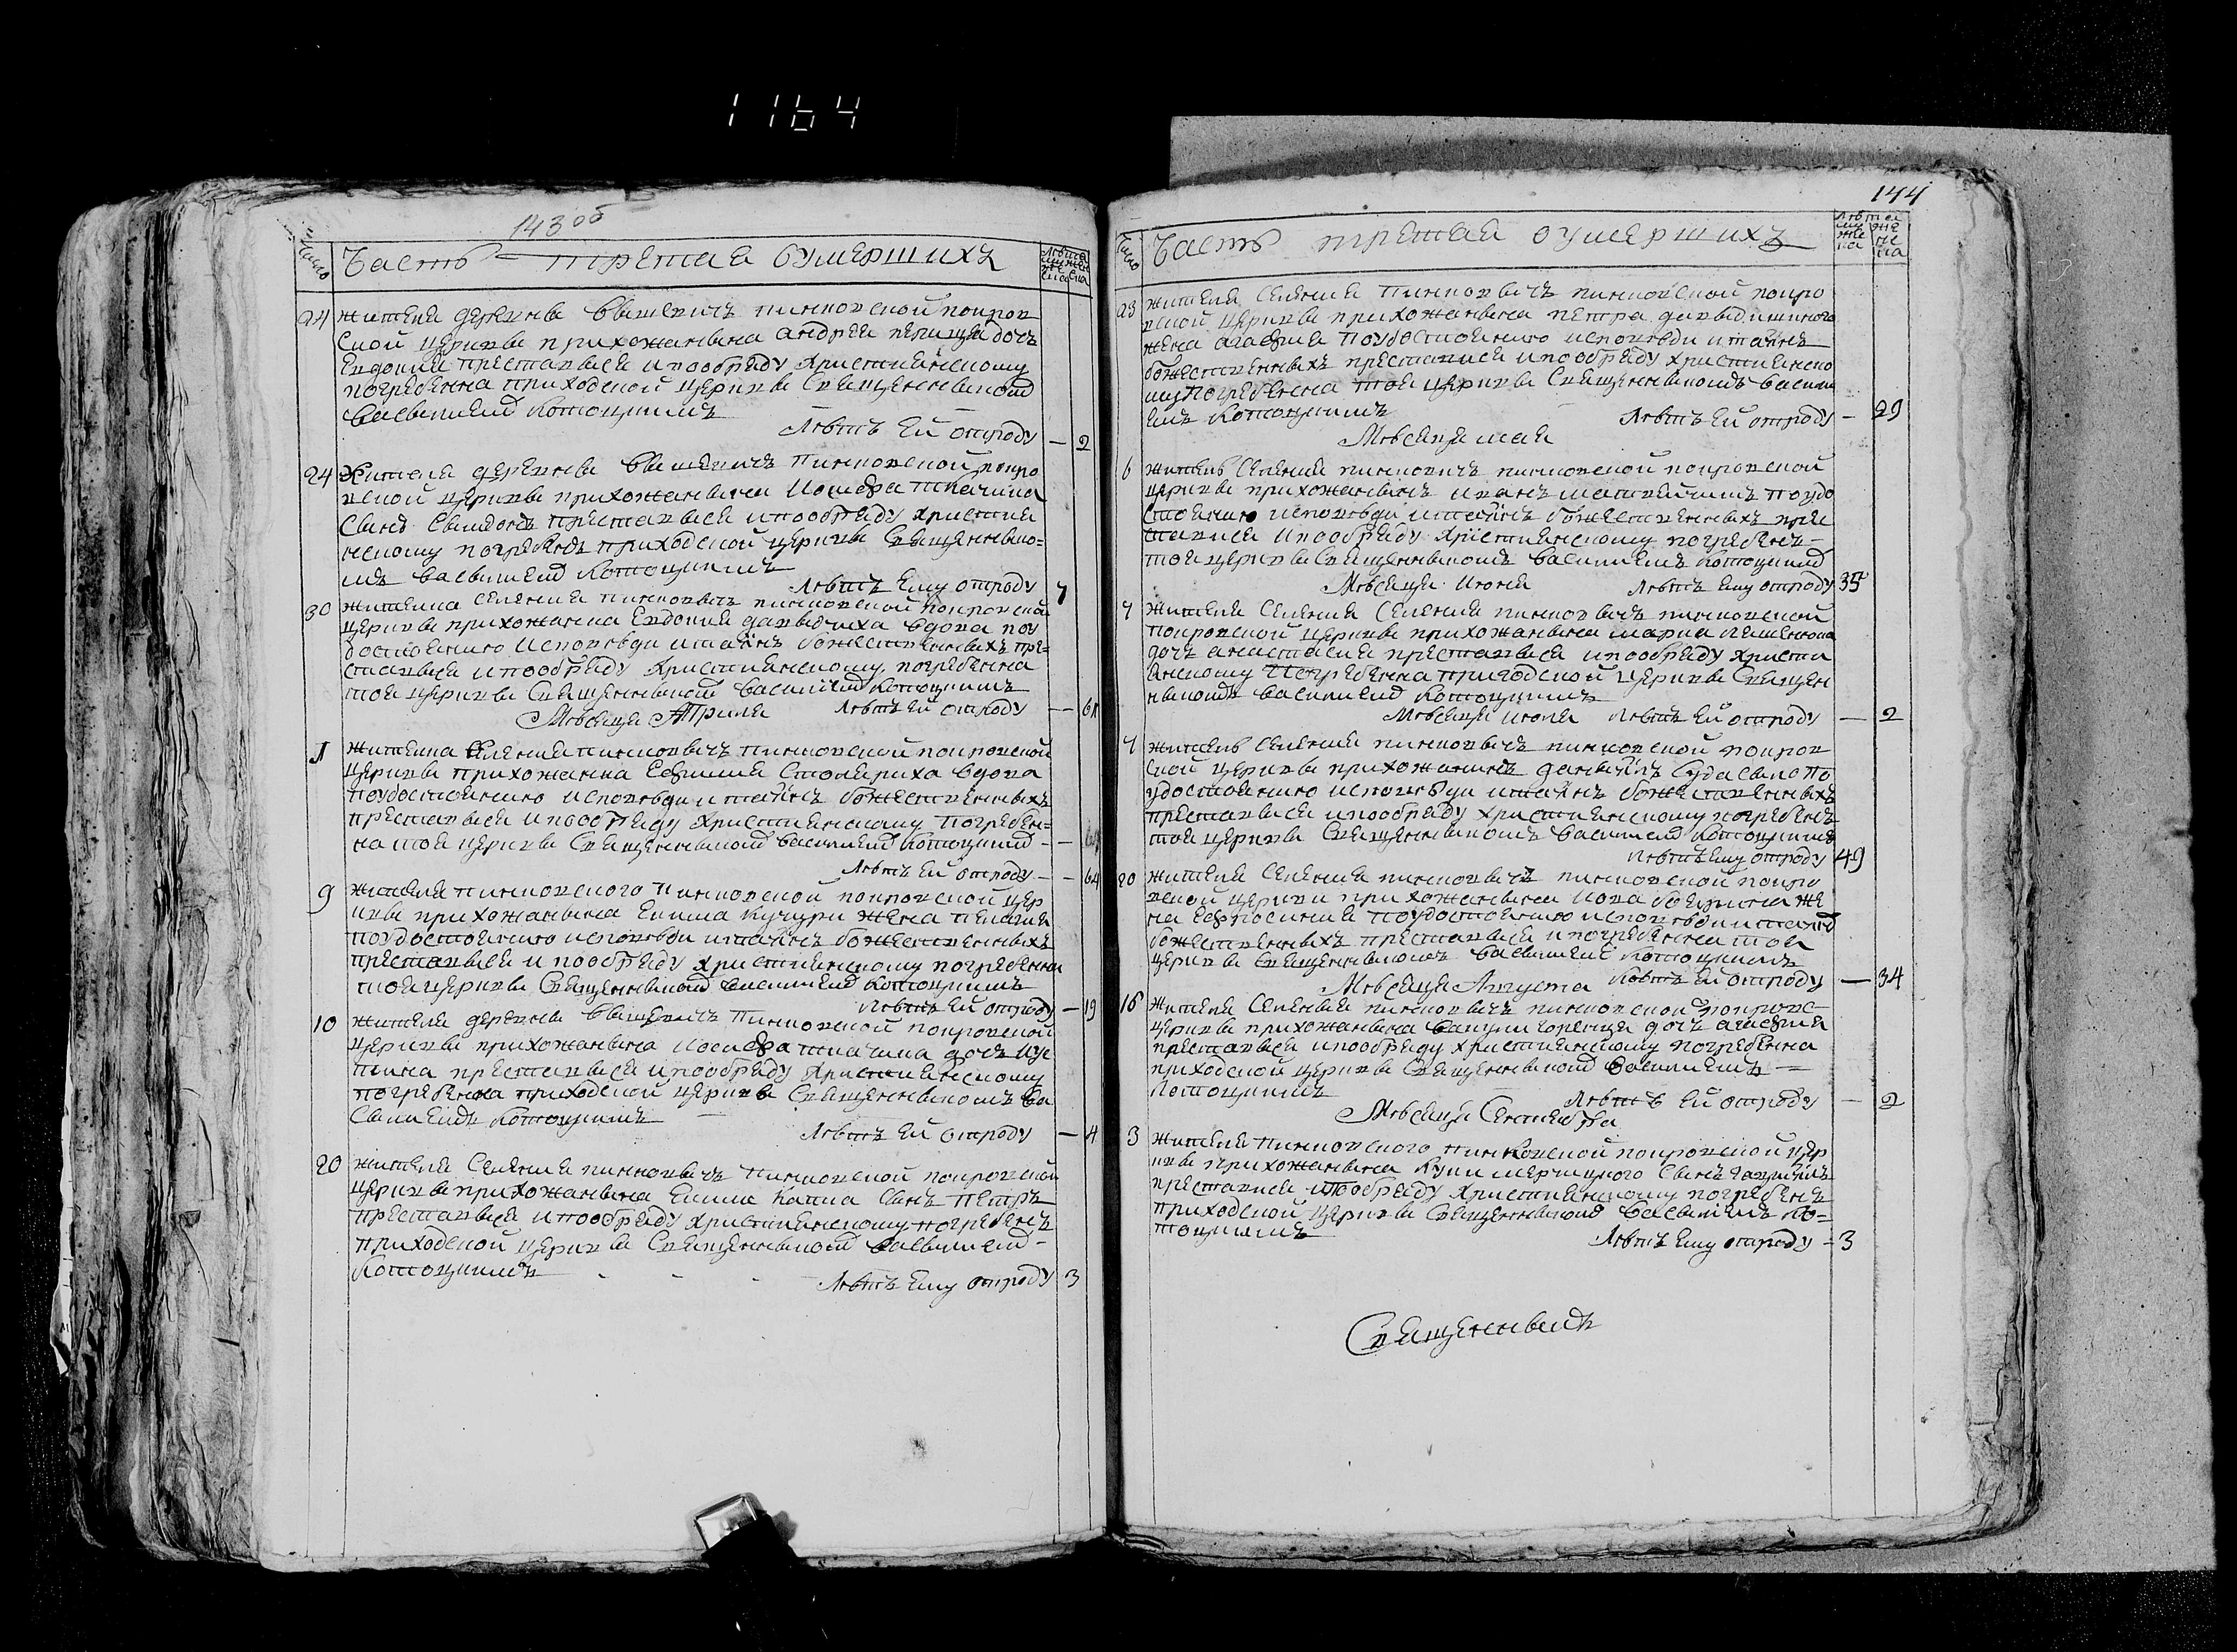 1164
143 об
Число
Часть третая оумершихъ
Лѣта
мужеска
женска
24 жителя деревне Вышевичъ Пинковской покров
ской церкве прихожанына андрея дочъ
Евдокия преставися и пообряду християнскому
погребенна приходской церкве Священныкомъ
Васылиемъ Котоцкимъ
Лѣтъ Ей отроду — 2
24 Жителя деревне Вышевичъ Пинковской покро
вской церкве прихожанына Иосифа Ткачика
Сынъ преставися и пообряду християн
скому погребенъ приходской церкве Священныко=
мъ Васылиемъ Котоцкимъ
Лѣтъ Ему отроду 7
30 жителка селения Пинковичъ пинковской покровской
церкве прихожанка Евдокия давыдчиха вдова поу
достоению исповѣди итайнъ божественныхъ пре=
ставися и пообряду Християнскому погребенна
тоя церкве Священныкомъ Василиемъ Котоцкимъ
Мѣсяца Априля Лѣтъ Ей отроду —
1 жителка селения пинковичъ Пинковской покровской
церкве прихожанка Ефимия Столяриха вдова
поудостоению исповѣди и тайнъ божественныхъ
преставися и пообряду Християнскому погребен=
на тоя церкве Священныкомъ Василиемъ Котоцкимъ -
Лѣтъ Ей отроду — 64
9 жителя пинковского Пинковской покровской цер
кве прихожанына жена Пелагия
поудостоению исповѣди итайнъ божественныхъ
преставися и пообряду християнскому погребенна
тоя церкве Священныкомъ Василиемъ Котоцкимъ
Лѣтъ Ей отроду — 19
10 жителя деревне Вышевичъ Пинковской покровской
церкве прихожанына Иосифа ткачика дочъ Иус
тина преставися и пообряду Християнскому
погребенна приходской церкве Священныкомъ Ва
сылиемъ Котоцкимъ
Лѣтъ Ей отроду — 4
20 жителя Селения пинковичъ Пинковской покровской
церкве прихожанына Сынъ Петръ
преставися и пообряду християнскому погребенъ
приходской церкве Священныкомъ Васылиемъ -
Котоцкимъ
Лѣтъ Ему отроду 3
144
Число
Часть третая оумершихъ
Лѣта
му
же
ска
же
не
ка
23 жителя Селения Пинковичъ пинковской покро
вской церкве прихожанына петра
жена агафия Поудостоению исповѣди итайнъ
божественныхъ преставися и пообряду християнско
му погребенна тоя церкве Священныкомъ Васили
емъ Котоцкимъ Лѣтъ Ей отроду — 29
Мѣсяця мая
6 житель Селения пинковичъ пинковской покровской
церкве прихожанынъ Иванъ поудо
стоению исповѣди итайнъ божественныхъ пре
ставися и пообряду Християнскому погребенъ -
тоя церкве Священныкомъ Василиемъ Котоцкимъ
Мѣсяця Июня Лѣтъ Ему отроду 35
7 Жителя Селения Селения пинковичъ пинковской
покровской церкве прихожанына
дочъ анастасия преставися и пообряду християн
скому Погребенна приходской церкве Священ
ныкомъ Василиемъ Котоцкимъ
Мѣсяця июля Лѣтъ Ей отроду — 2
7 житель Селения пинковичъ пинковской покров
ской церкве прихожанинъ даныилъ по
удостоению исповѣди итайнъ божественныхъ
преставися и пообряду християнскому погребенъ
тоя церкве Священныкомъ Василиемъ Котоцкимъ
Лѣтъ Ему отроду 49
20 жителя Селения пинковичъ пинковской покро
вской церкви прихожанына Иова же
на Ефросиния поудостоению исповѣди и тайнъ
божественныхъ преставися и погребенна тоя
церкве Священныкомъ Васылиемъ Котоцкимъ
Мѣсяця Августа Лѣтъ Ей отроду — 34
16 жителя Селения пинковичъ пинковской покровс-
церкве прихожанына дочъ агафия
преставися и пообряду християнскому погребенна
приходской церкве Священныкомъ Василиемъ —
Котоцкимъ Лѣтъ Ей отроду — 2
Мѣсяця Сентебра
3 жителя пинковского пинковской покровской цер
кве прихожанына Сынъ
преставися и пообряду Християнскому погребенъ
приходской церкве Священныкомъ Васылиемъ Ко=
тоцкимъ
Лѣтъ Ему отроду - 3
Священныкъ